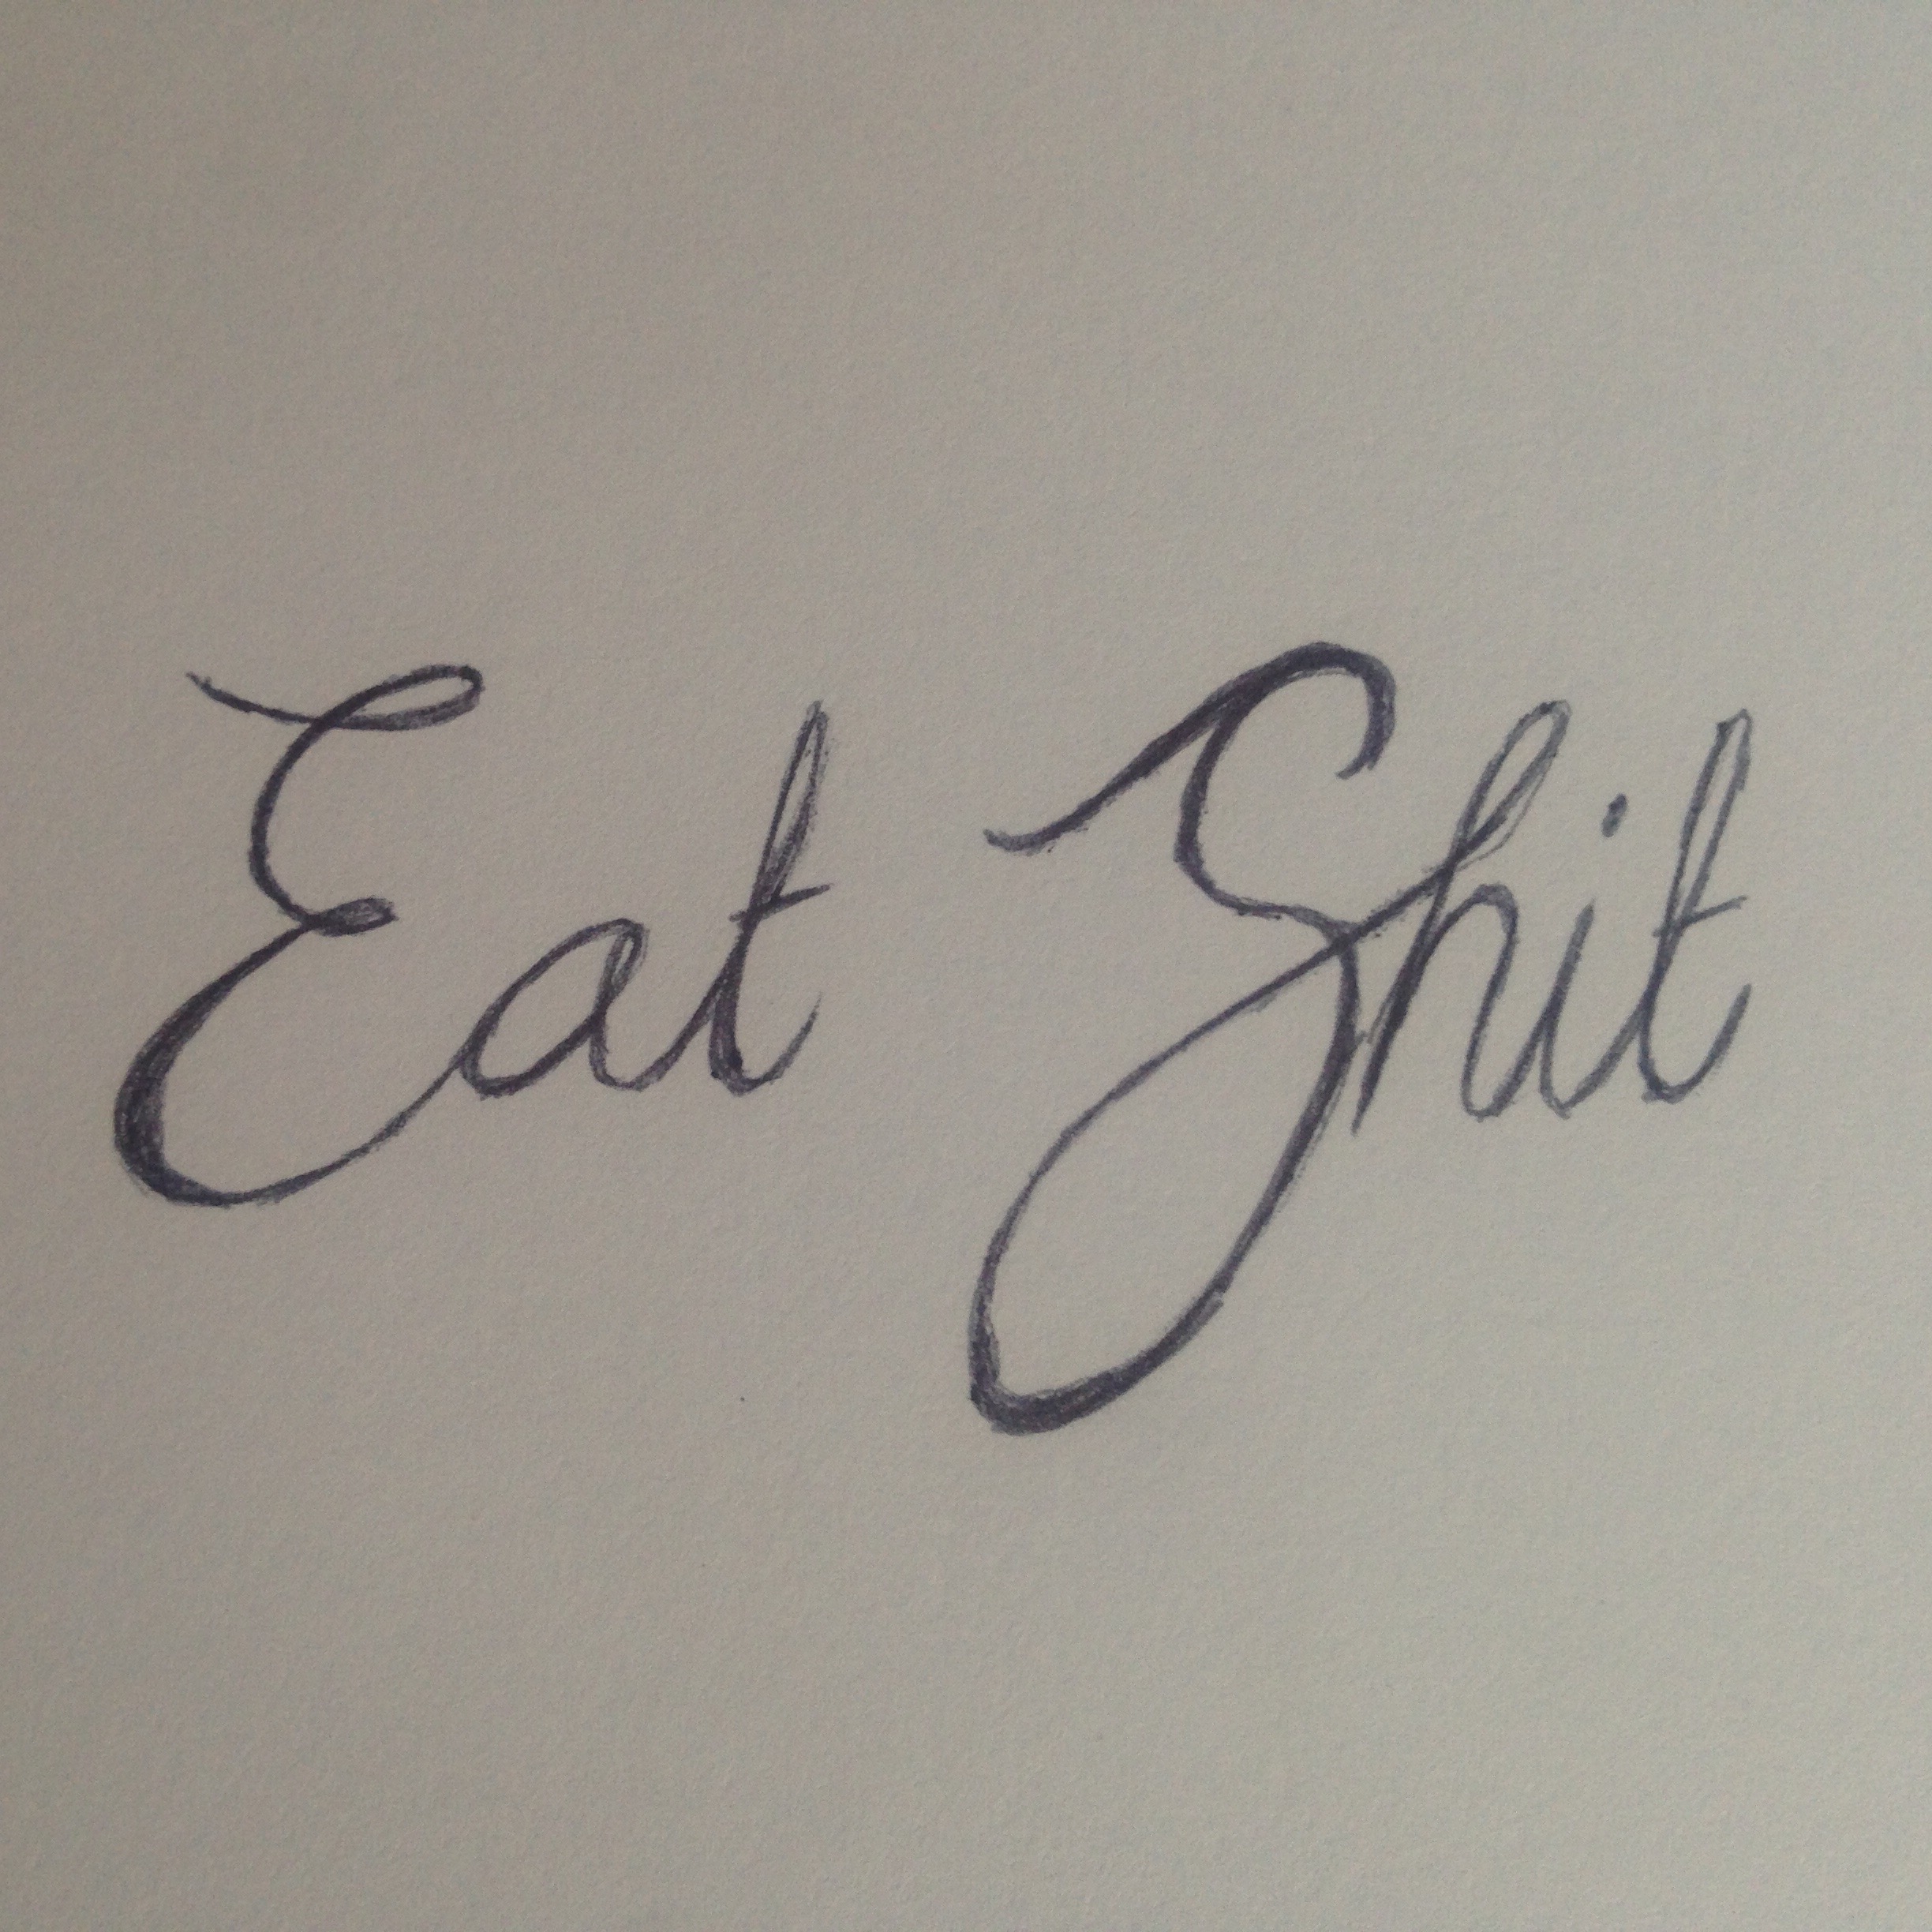 Eat Shit